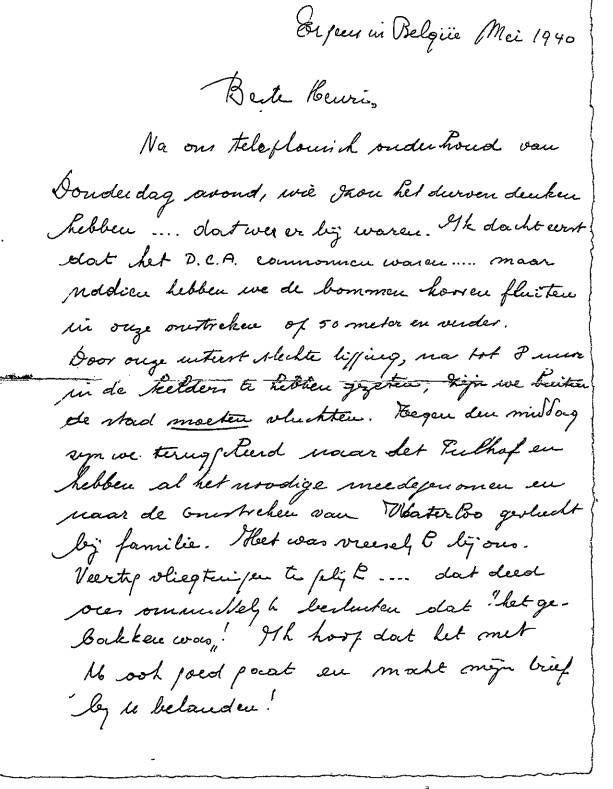 Ergens in België Mei 1940
Beste Henri,
Na ons telefonisch onderhoud van
Donderdag avond, wie zou het durven denken
hebben .... dat we er bij waren. Ik dacht eerst
dat het D.C.A. cannonnen waren ..... maar
nddien hebben we de bommen hooren fluiten
in onze omstreken of 50 meter en verder.
Door onze uiterst slechte ligging, na tot 8 uur
in de kelders te hebben gezeten, zijn we buiten
de stad moeten vluchten. Tegen den middag
zijn we teruggekeerd naar het Pulhof en
hebben al het noodige meedegenomen en
naar de omstreken van Waterloo gevlucht
bij familie. Het was vreeselyk bij ons.
Veertig vliegtuigen te gelijk .... dat deed
ons onmiddelyk besluiten dat "het ge-
bakken was"! Ik hoop dat het met
U ook goed gaat en mocht mijn brief
bij U belanden!